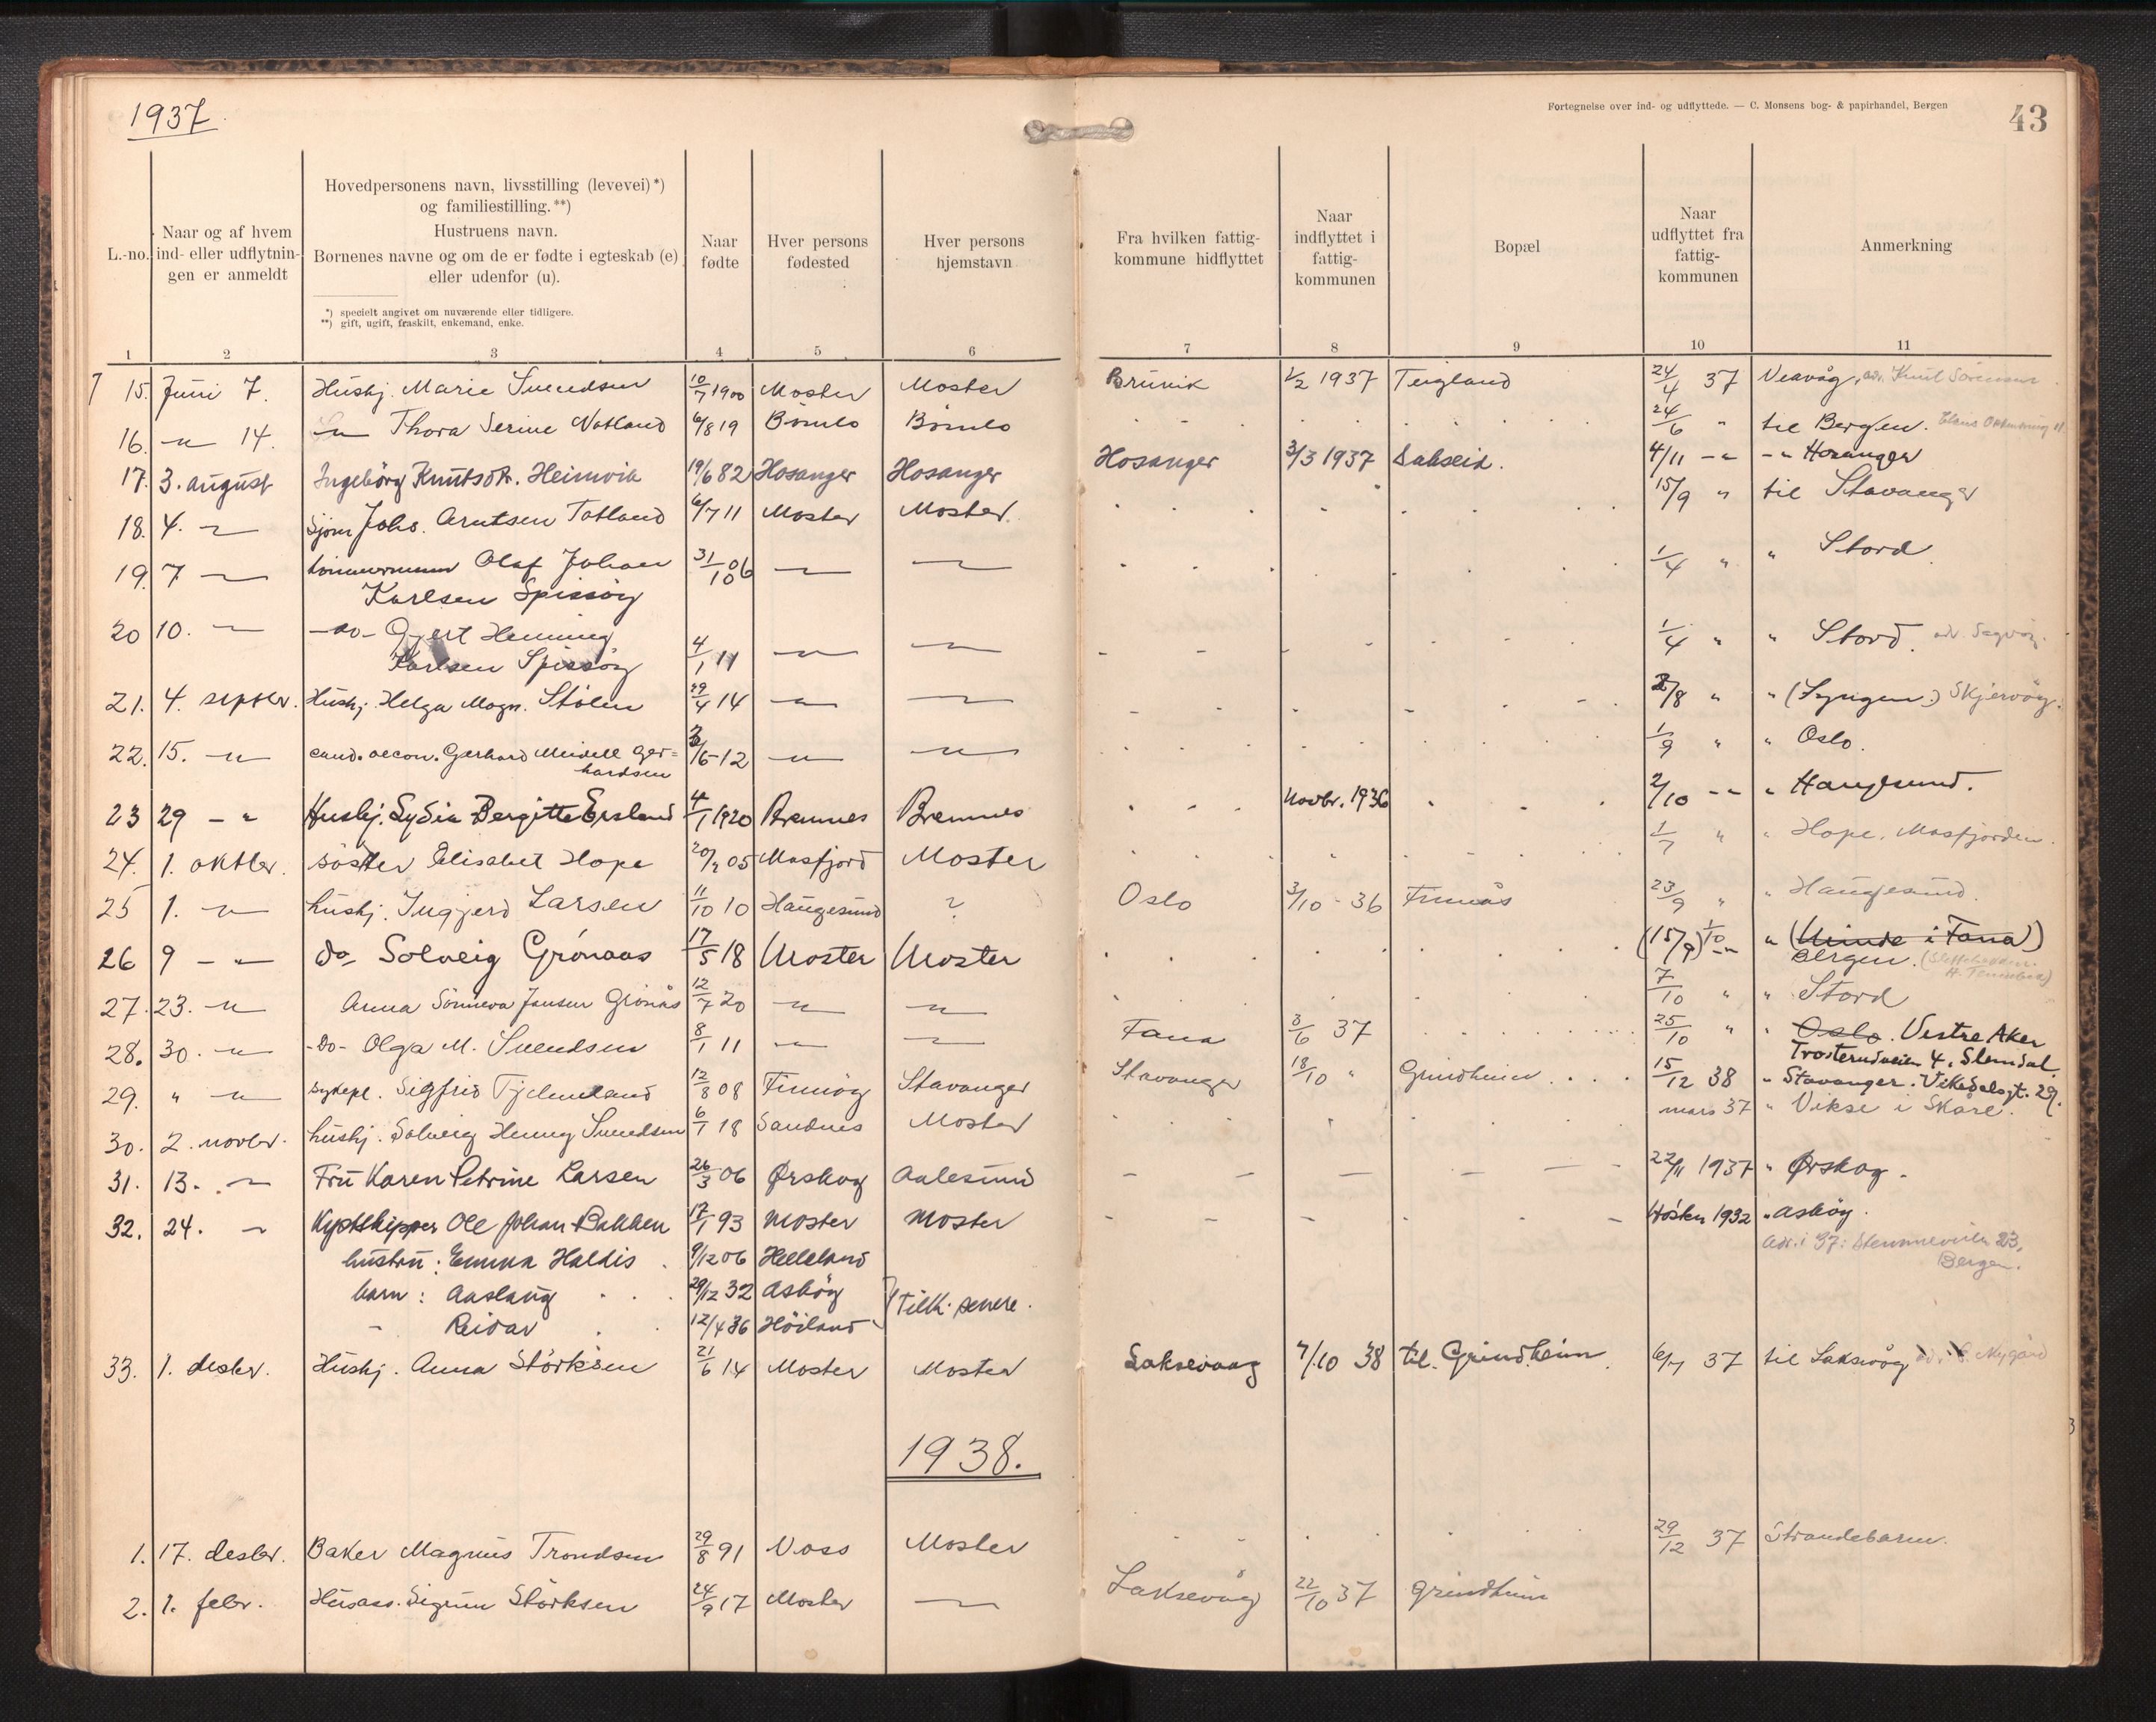 1937
Fortegnelse over ind- og udflyttede. — C. Monsens bog- & papirhandel, Bergen
43
L.-no.
Naar og af hvem ind- eller udflytnin- gen er anmeldt
Hovedpersonens navn, livsstilling (levevei)*)
og familiestilling.**)
Hustruens navn.
Børnenes navne og om de er fødte i egteskab (e)
eller udenfor (u).
*) specielt angivet om nuværende eller tidligere.
**) gift, ugift, fraskilt, enkemand, enke.
Naar fødte
Hver persons fødested
Hver persons hjemstavn
Fra hvilken fattig- kommune hidflyttet
Naar indflyttet i fattig- kommunen
Bopæl
Naar udflyttet fra fattig- kommunen
Anmerkning
1 2 3 4 5 6 7 8 9 10 11
15. Juni 7. Hushj. Marie Svendsen 10/7 1900 Moster Moster Bruvik 1/2 1937 Teigland 24/4 37 Veavåg, adr. Knut Sörensen
16. -"- 14. -"- Thora Serine Vatland 6/8 19 Bömlo Bömlo 24/6 " til Bergen.
17. 3. august Ingebörg Knutsdtr. Heimvik 19/6 82 Hosanger Hosanger Hosanger 3/3 1937 Sakseid. 4/11 -"- -"- Hosanger
18. 4. -"- Sjöm Johs. Arntsen Totland 6/7 11 Moster Moster. 15/9 " til Stavanger
19. 7 -"- tömmermann Olaf Johan 31/10 06 -"- -"- 1/4 " " Stord
Karlsen Spissöy
20 10. -"- -do- Gjert Henning
Karlsen Spissöy 4/1 11 -"- -"- 1/4 " " Stord. adr. Sagvåg.
21. 4. septbr. Hushj. Helga Magn. Stölen 29/4 14 -"- -"- 2/8 " " (Lyngen.) Skjervöy.
22. 15. -"- cand. oecon. Gerhard Meidell Ger=
hardsen 3/5-12 -"- -"- 1/9 " " Oslo.
23 29 -"- Hushj. Lydia Bergitte Ersland 4/1 1920 Bremnes Bremnes Novbr. 1936 2/10 -"- " Haugesund.
24. 1. oktbr. söster Elisabet Hope 20/2 05 Masfjord Moster 1/7 " " Hope, Masfjorden.
25 1. -"- hushj. Ingjerd Larsen 11/10 10 Haugesund ? Oslo 3/10 - 36 Finnås 23/9 " " Haugesund.
26 9 -"- do- Solveig Grönaas 17/5 18 Moster Moster (15/9) 1/10 -"- " (Minde i Fana)
Bergen.
27. 23. -"- Anna Sönneva Jansen Grönås 12/7 20 -"- -"- 7/10 " " Stord
28. 30. -"- -do- Olga M. Svendsen 8/1 11 -"- -"- Fana 3/6 37 25/10 " " Oslo. Vestre Aker
Trosterudveien 4, Slemdal.
29. " -"- sykepl. Sigfrid Tjelmeland 12/8 08 Finnöy Stavanger Stavanger 18/10 " Grindheim 15/12 38 " Stavanger. Vikedalsgt. 29.
30. 2. novbr. hushj. Solveig Henny Svendsen 6/1 18 Sandnes Moster mars 37 " Vikse i Skåre.
31. 13. -"- Fru Karen Petrine Larsen 26/3 06 Ørskog Aalesund 22/11 1937 " Ørskog.
32. 24. -"- Kystskipper Ole Johan Bakken 17/1 93 Moster Moster Hösten 1932 " Asköy.
hustru: Emma Haldis 9/12 06 Helleland adr. i 37: Stemmeveien 23,
Bergen.
barn: Aaslaug 29/12 32 Asköy } Tilk. senere.
- Reidar 12/4 36 Höiland
33. 1. desbr. Hushj. Anna Störksen 21/6 14 Moster Moster Laksevaag 7/10 38 til. Grindheim 6/7 37 til Laksevåg adr. Nygård
1938.
1. 17. desbr. Baker Magnus Trondsen 29/8 91 Voss Moster 29/12 37 Strandebarm.
2. 1. febr. Husass. Sigrun Störksen 24/9 17 Moster -"- Laksevåg 22/10 37 Grindheim